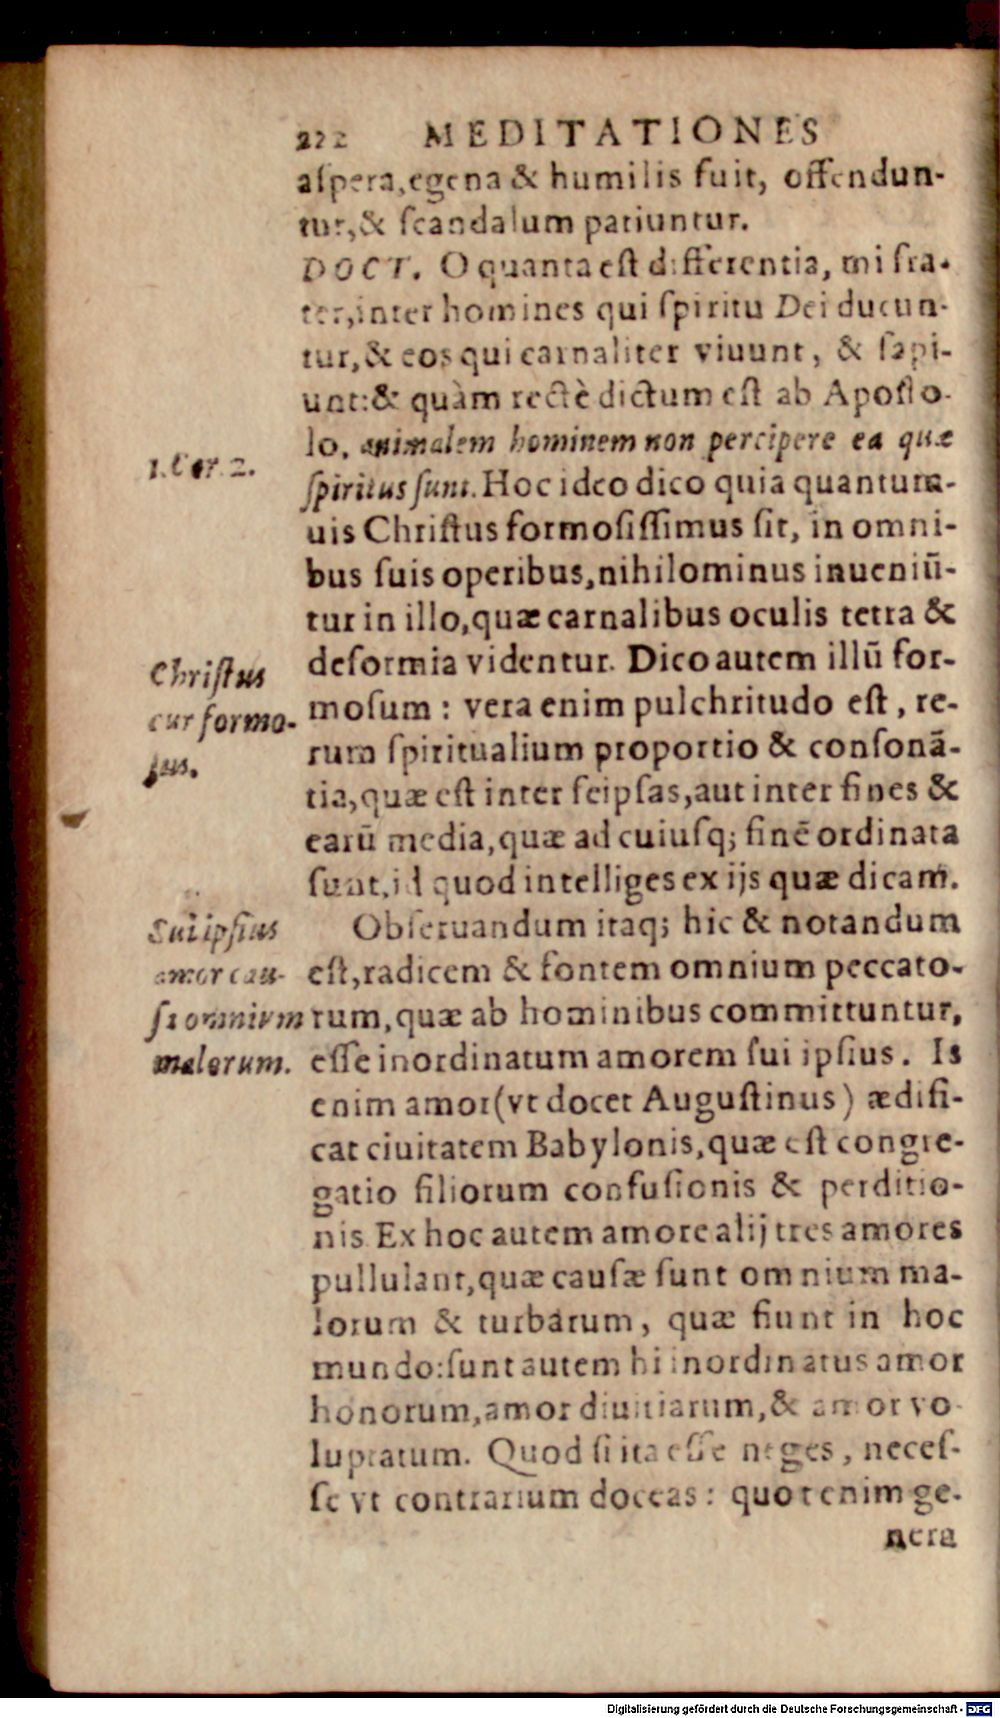 222 MEDITATIONES
aſpera, egena & humilis fuit, offendun-
tur, & ſcandalum patiuntur.
DOCT. O quanta eſt differentia, mi fra-
ter, inter homines qui ſpiritu Dei ducun-
tur, & eos qui carnaliter viuunt, & ſapi-
unt: & quàm rectè dictum eſt ab Apoſto-
lo, animalem hominem non percipere ea quæ
1. Cor. 2.
ſpiritus ſunt. Hoc ideo dico quia quantum-
uis Chriſtus formoſiſſimus ſit, in omni-
bus ſuis operibus, nihilominus inueniũ-
tur in illo, quæ carnalibus oculis tetra &
deformia videntur. Dico autem illũ for-
Chriſtus
cur formo-
ſus.
moſum : vera enim pulchritudo eſt, re-
rum ſpiritualium proportio & conſonã-
tia, quæ eſt inter ſeipſas, aut inter fines &
earũ media, quæ ad cuiuſq; finẽ ordinata
ſunt, id quod intelliges ex ijs quæ dicam.
Obſeruandum itaq; hic & notandum
Sui ipſius
amor cau-
ſa omnium
malorum.
eſt, radicem & fontem omnium peccato-
rum, quæ ab hominibus committuntur,
eſſe inordinatum amorem ſui ipſius. Is
enim amor (vt docet Auguſtinus) ædifi-
cat ciuitatem Babylonis, quæ eſt congre-
gatio filiorum confuſionis & perditio-
nis. Ex hoc autem amore alij tres amores
pullulant, quæ cauſæ ſunt omnium ma-
lorum & turbarum, quæ fiunt in hoc
mundo: ſunt autem hi inordinatus amor
honorum, amor diuitiarum, & amor vo-
luptatum. Quod ſi ita eſſe neges, neceſ-
ſe vt contrarium doceas : quot enim ge-
nera
Digitalisierung gefördert durch die Deutsche Forschungsgemeinschaft - DFG